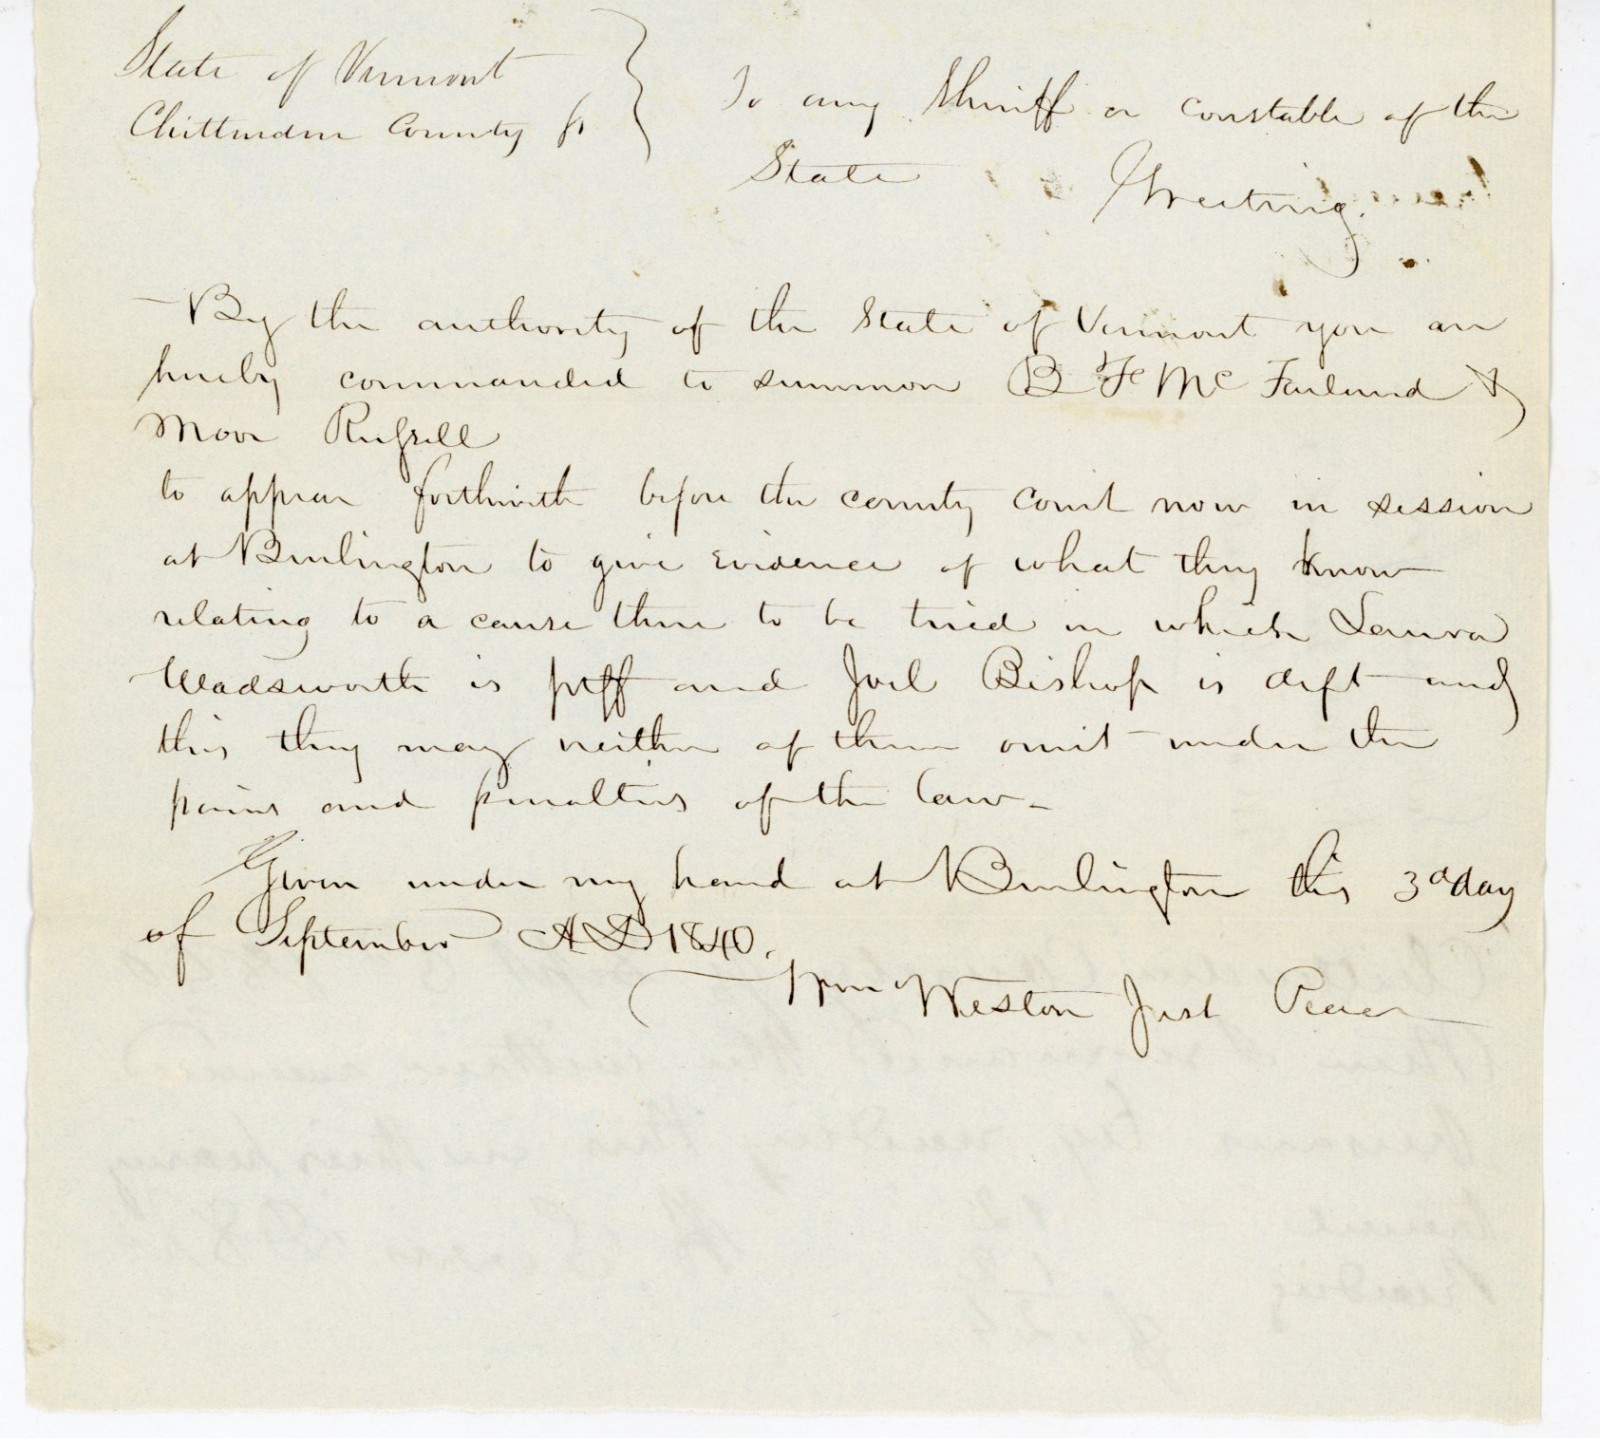 State of Vermont
Chittenden County ss
To any Sheriff or constable of the
State Greeting.
By the authority of the State of Vermont you are
hereby commanded to summon B F McFarland &
Moor Russell
to appear forthwith before the county court now in session
at Burlington to give evidence of what they know
relating to a cause then to be tried in which Laura
Wadsworth is ptff and Joel Bishop is deft and
this they may neither of them omit under the
pains and penalties of the law -
Given under my hand at Burlington this 3d day
of September AD 1840.
Wm Weston Just Peace